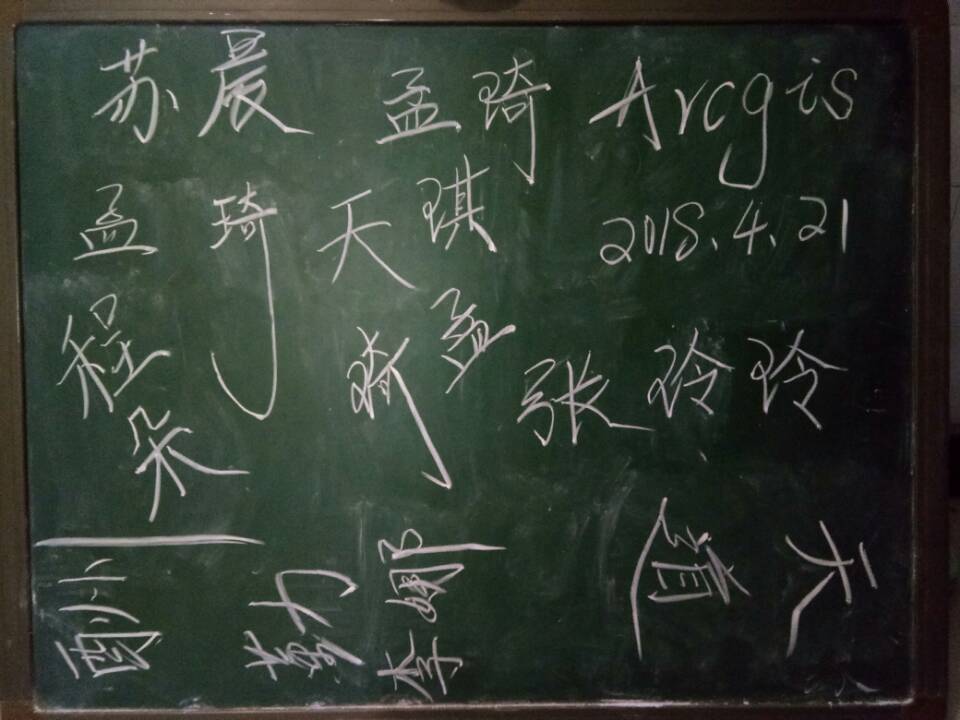 苏晨 孟琦 Arcgis
孟琦 天琪 2018.4.21
程朵 孟琦 张玲玲
李娜
天道